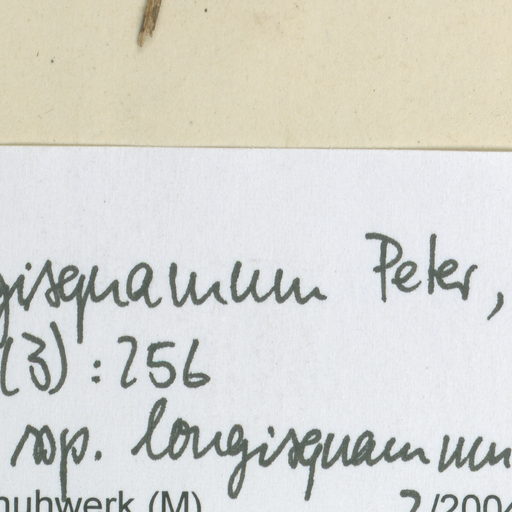 gisquamum Peter,
(3) : 256
ssp. longisquamum
huhwerk (M) 2/200